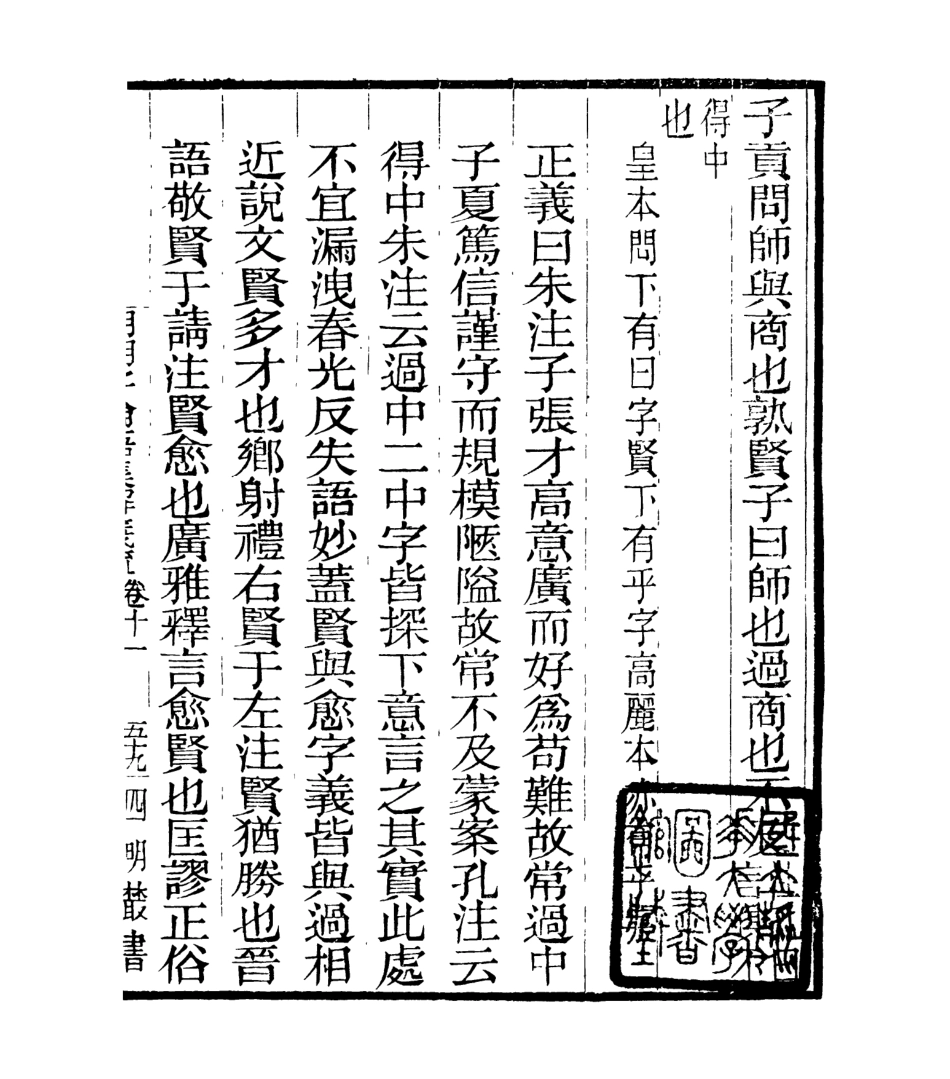 子貢問師與商也孰賢子曰師也過商也不及
得中
也
皇本問下有曰字賢下有乎字高麗本亦有乎字
正義曰朱注子張才高意廣而好爲苟難故常過中
子夏篤信謹守而規模陿隘故常不及蒙案孔注云
得中朱注云過中二中字皆探下意言之其實此處
不宜漏洩春光反失語妙蓋賢與愈字義皆與過相
近說文賢多才也鄉射禮右賢于左注賢猶勝也晉
語敬賢于請注賢愈也廣雅釋言愈賢也匡謬正俗
卷十一
五九
四明叢書